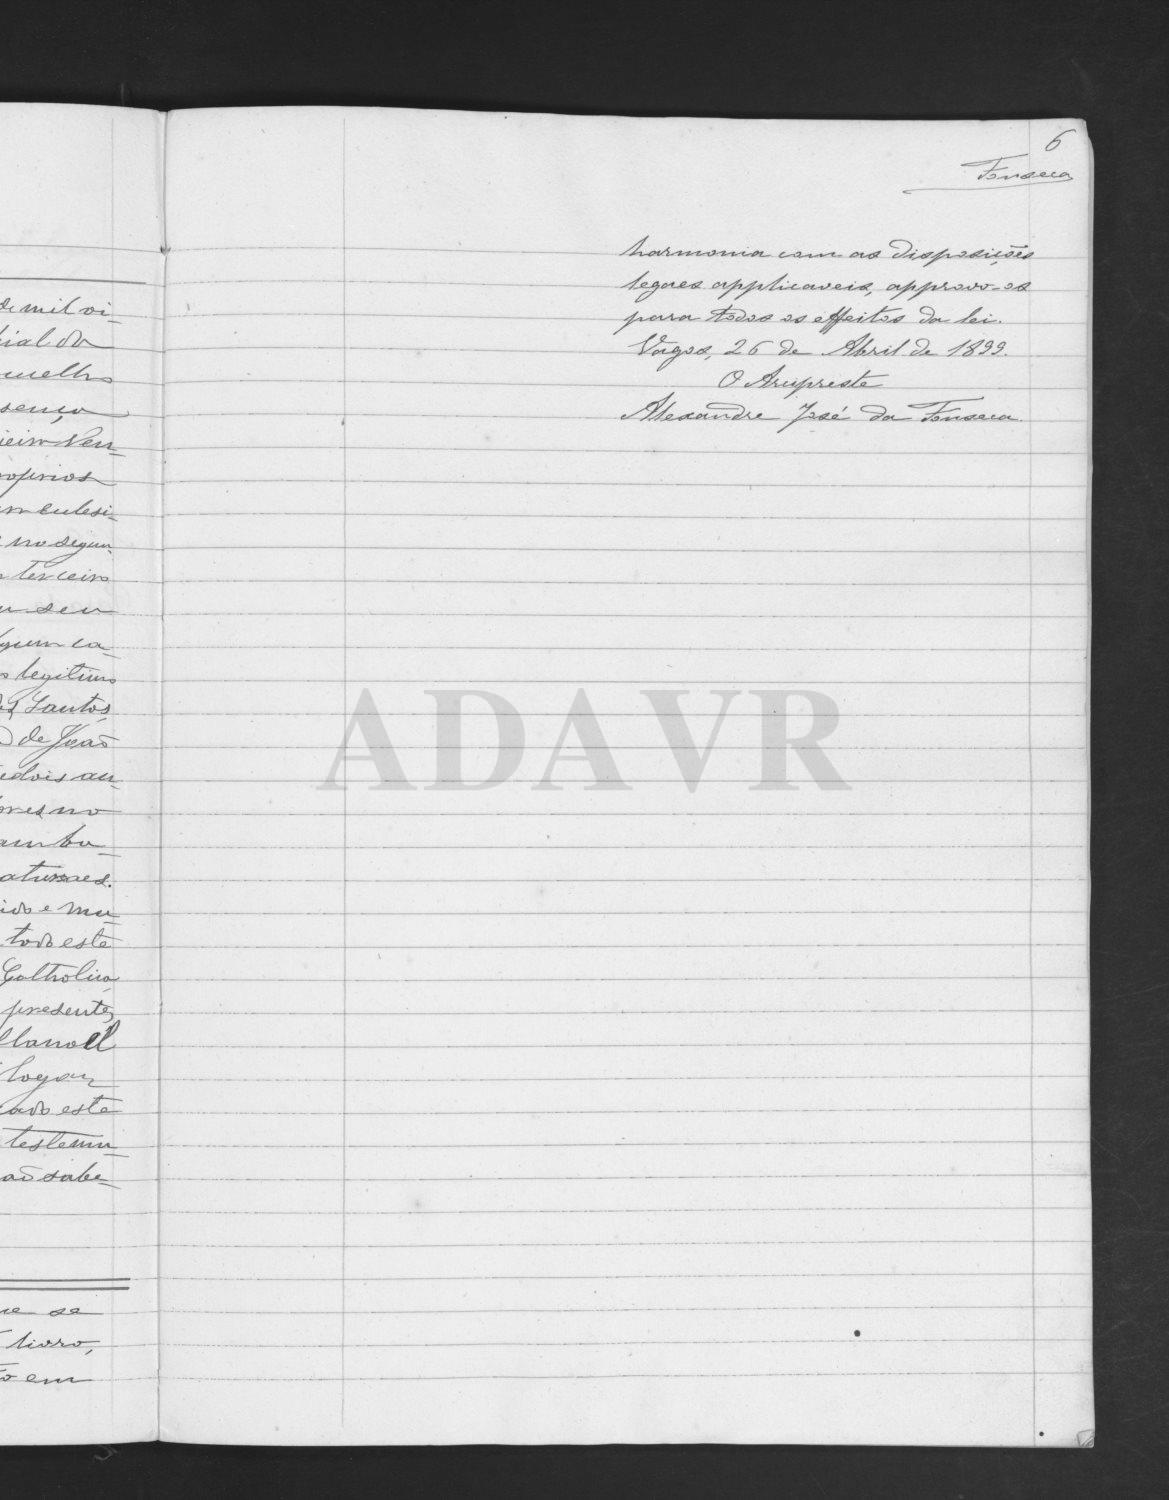 de mil oi-
cial da
melho
sença
ieiro Ven-
roprios
m eclesi-
no segun-
terceiro
u seu
lgum ca-
legitimo
dos Santos,
de João
dois an-
ores no
am ba-
aturaes.
ido e mu-
todo este
Catholica,
presentes
Manoel
logar
cado este
testemu-
ão sabe-
ue se
livro,
to em
6
Fonseca
harmonia com as disposições
legaes applicaveis, approvo-os
para todos os effeitos da lei.
Vagos, 26 de Abril de 1899.
O Arcipreste
Alexandre José da Fonseca.
ADAVR